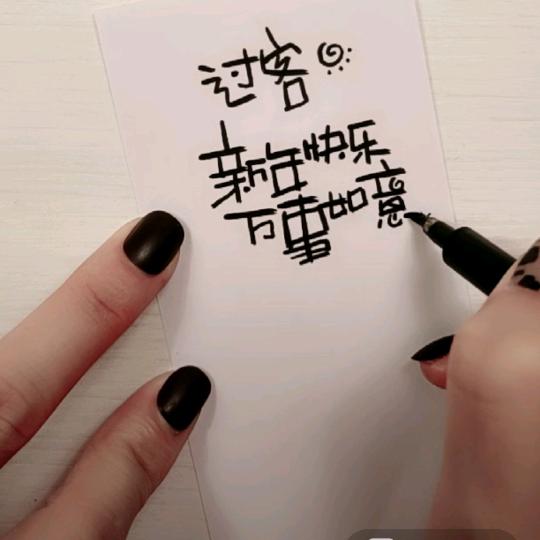 过客
新年快乐
万事如意